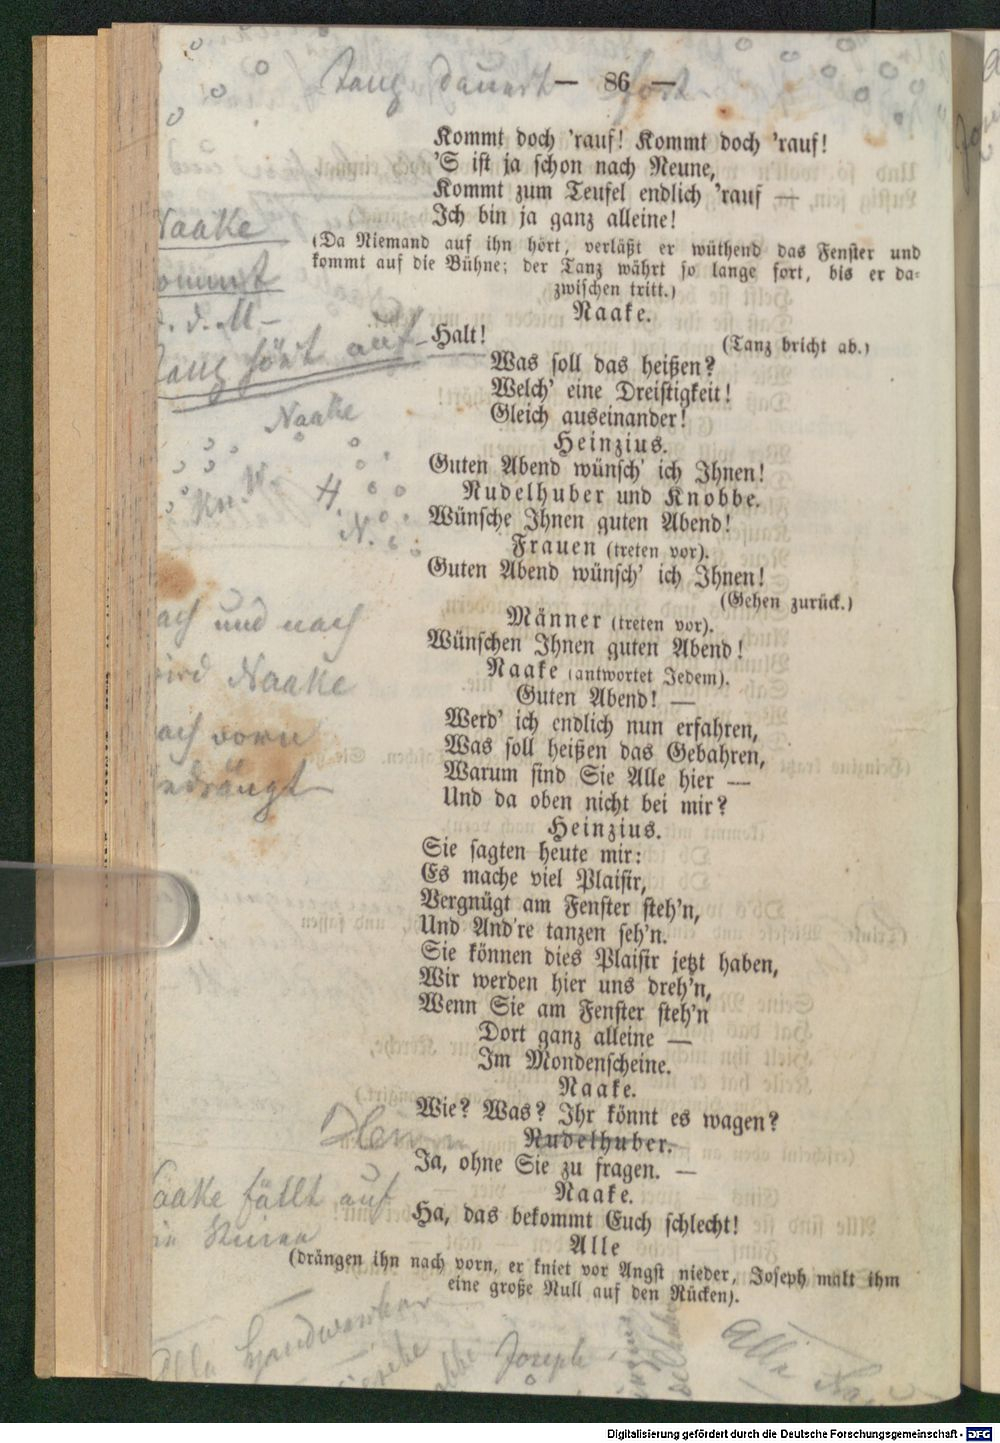 Tanz dauert — 86 — fort
Kommt doch 'rauf! Kommt doch 'rauf!
'S ist ja schon nach Neune,
Kommt zum Teufel endlich 'rauf —
Ich bin ja ganz alleine!
Naake
(Da Niemand auf ihn hört, verläßt er wüthend das Fenster und
kommt auf die Bühne; der Tanz währt so lange fort, bis er da-
zwischen tritt.)
Naake.
Halt!
(Tanz bricht ab.)
Tanz hört auf
Was soll das heißen?
Welch' eine Dreistigkeit!
Gleich auseinander!
Naake
Heinzius.
Guten Abend wünsch' ich Ihnen!
Rudelhuber und Knobbe.
H.
N.
Wünsche Ihnen guten Abend!
Frauen (treten vor).
Guten Abend wünsch' ich Ihnen!
(Gehen zurück.)
Männer (treten vor).
Wünschen Ihnen guten Abend!
Naake (antwortet Jedem).
Guten Abend! —
und nach
Naake
vorn
Werd' ich endlich nun erfahren,
Was soll heißen das Gebahren,
Warum sind Sie Alle hier —
Und da oben nicht bei mir?
Heinzius.
Sie sagten heute mir:
Es mache viel Plaisir,
Vergnügt am Fenster steh'n,
Und And're tanzen seh'n.
Sie können dies Plaisir jetzt haben,
Wir werden hier uns dreh'n,
Wenn Sie am Fenster steh'n
Dort ganz alleine —
Im Mondenscheine.
Naake.
Wie? Was? Ihr könnt es wagen?
Rudelhuber.
Ja, ohne Sie zu fragen. —
Naake.
Naake fällt auf
Ha, das bekommt Euch schlecht!
Alle
(drängen ihn nach vorn, er kniet vor Angst nieder, Joseph malt ihm
eine große Null auf den Rücken).
Handwerker
Joseph
Alle
Digitalisierung gefördert durch die Deutsche Forschungsgemeinschaft - DFG